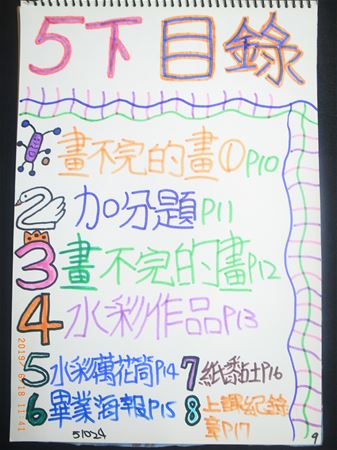 5下目錄
1 畫不完的畫① P10
2 加分題 P11
3 畫不完的畫 P12
4 水彩作品 P13
5 水彩萬花筒 P14
6 畢業海報 P15
7 紙黏土 P16
8 上課紀錄
章 P17
51024
9
2019/6/18 11:41